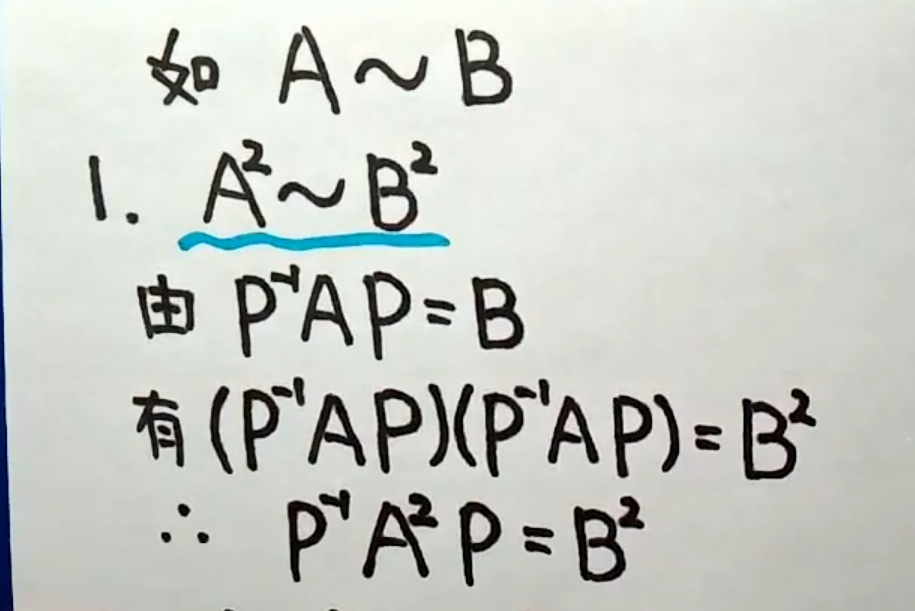 如 A～B
1. A²～B²
由 P⁻¹AP=B
有(P⁻¹AP)(P⁻¹AP)=B²
∴ P⁻¹A²P=B²